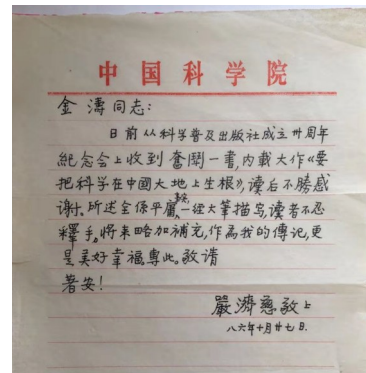 中国科学院
金濤同志:
日前从科学普及出版社成立卅周年
紀念会上收到奮鬭一書,内載大作《要
把科学在中國大地上生根》,读后不勝感
谢。所述全係平庸,一经大筆描写,读者不忍
釋手。将来略加補充,作為我的傳记,更
是美好幸福,專此。敬请
著安!
嚴濟慈敬上
八六年十月廿七日.